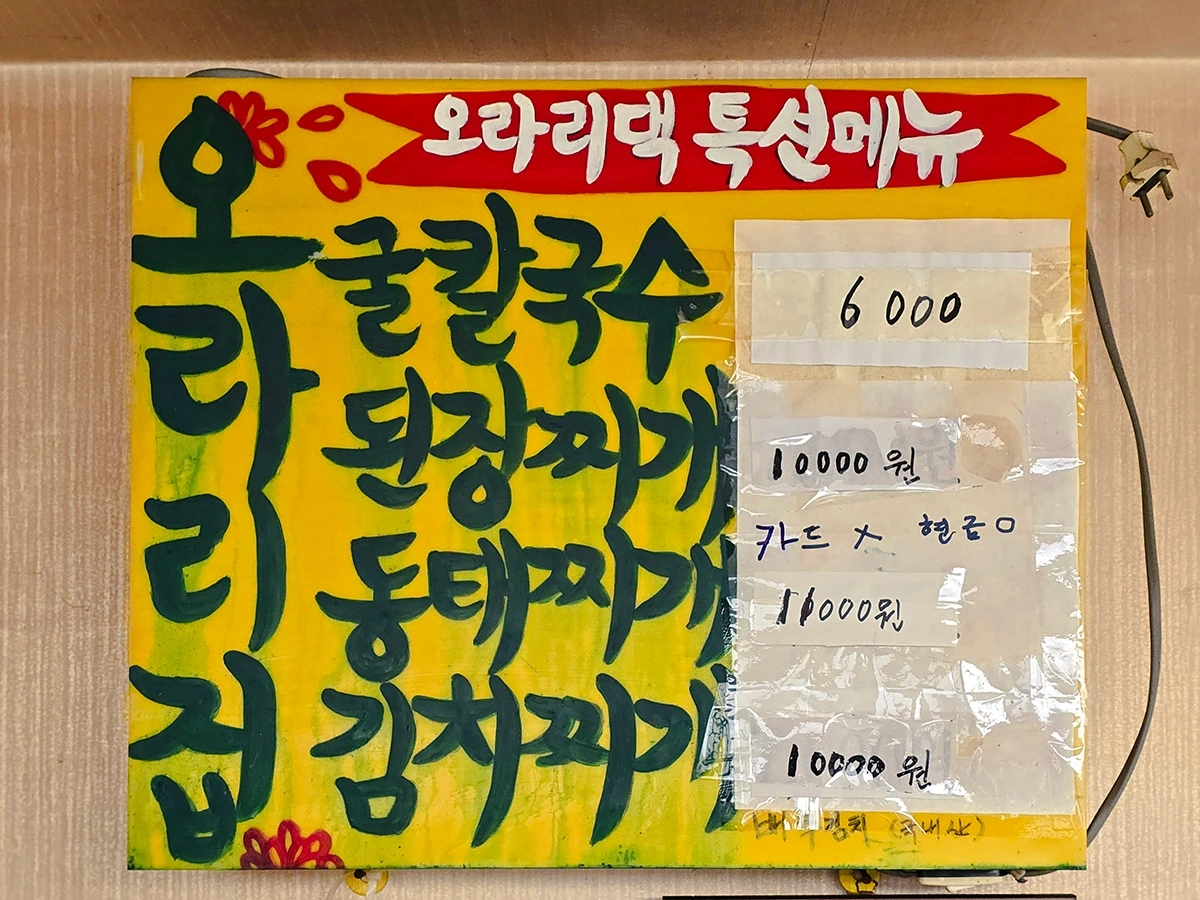 오라리집
오라리댁 특선메뉴
굴칼국수 6000
된장찌개 10000원
카드 X 현금 ㅁ
동태찌개 11000원
김치찌개 10000원
배추김치 (국내산)